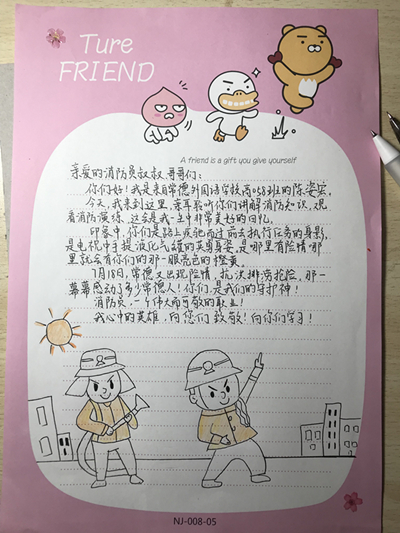 Ture
FRIEND
A friend is a gift you give yourself
亲爱的消防员叔叔、哥哥们：
你们好！我是来自常德外国语学校高058班的陈姿
今天，我来到这里，亲耳聆听你们讲解消防知识，观
看消防演练，这会是我一生中非常美好的回忆。
印象中，你们是路上疾驰而过前去执行任务的身影，
是电视中手提液化气罐的英勇身姿，是哪里有险情哪
里就会有你们的那一服亮色的橙黄。
7月18日，常德又出现险情，抗洪排涝抢险，那一
幕幕感动了多少常德人！你们，是我们的守护神！
消防员，一个伟大而可敬的职业！
我心中的英雄，向您们致敬！向你们学习！
NJ-008-05